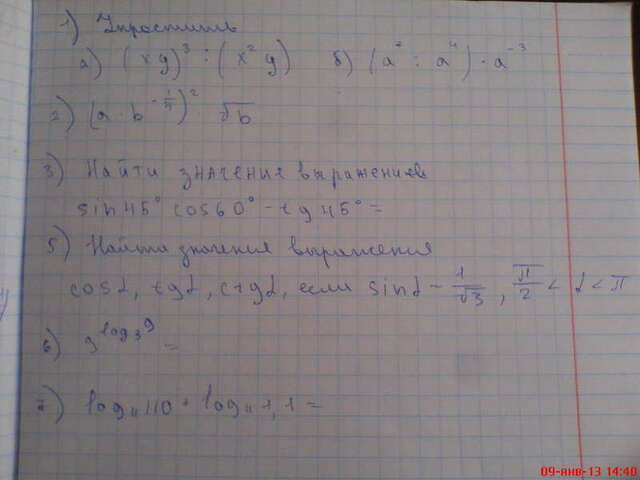 1) Упростить
а) (xy)³ : (x²y) б) (a² : a⁴) · a⁻³
2) (a · b^(-1/4))² · √b
3) Найти значение выражениев
sin45° cos60° - tg45° =
5) Найти значения выражения
cosα, tgα, ctgα, если sinα - 1/√3, π/2 < α < π
6) 9^(log₃9) =
7) log₁₁110 + log₁₁1,1 =
09-янв-13 14:40